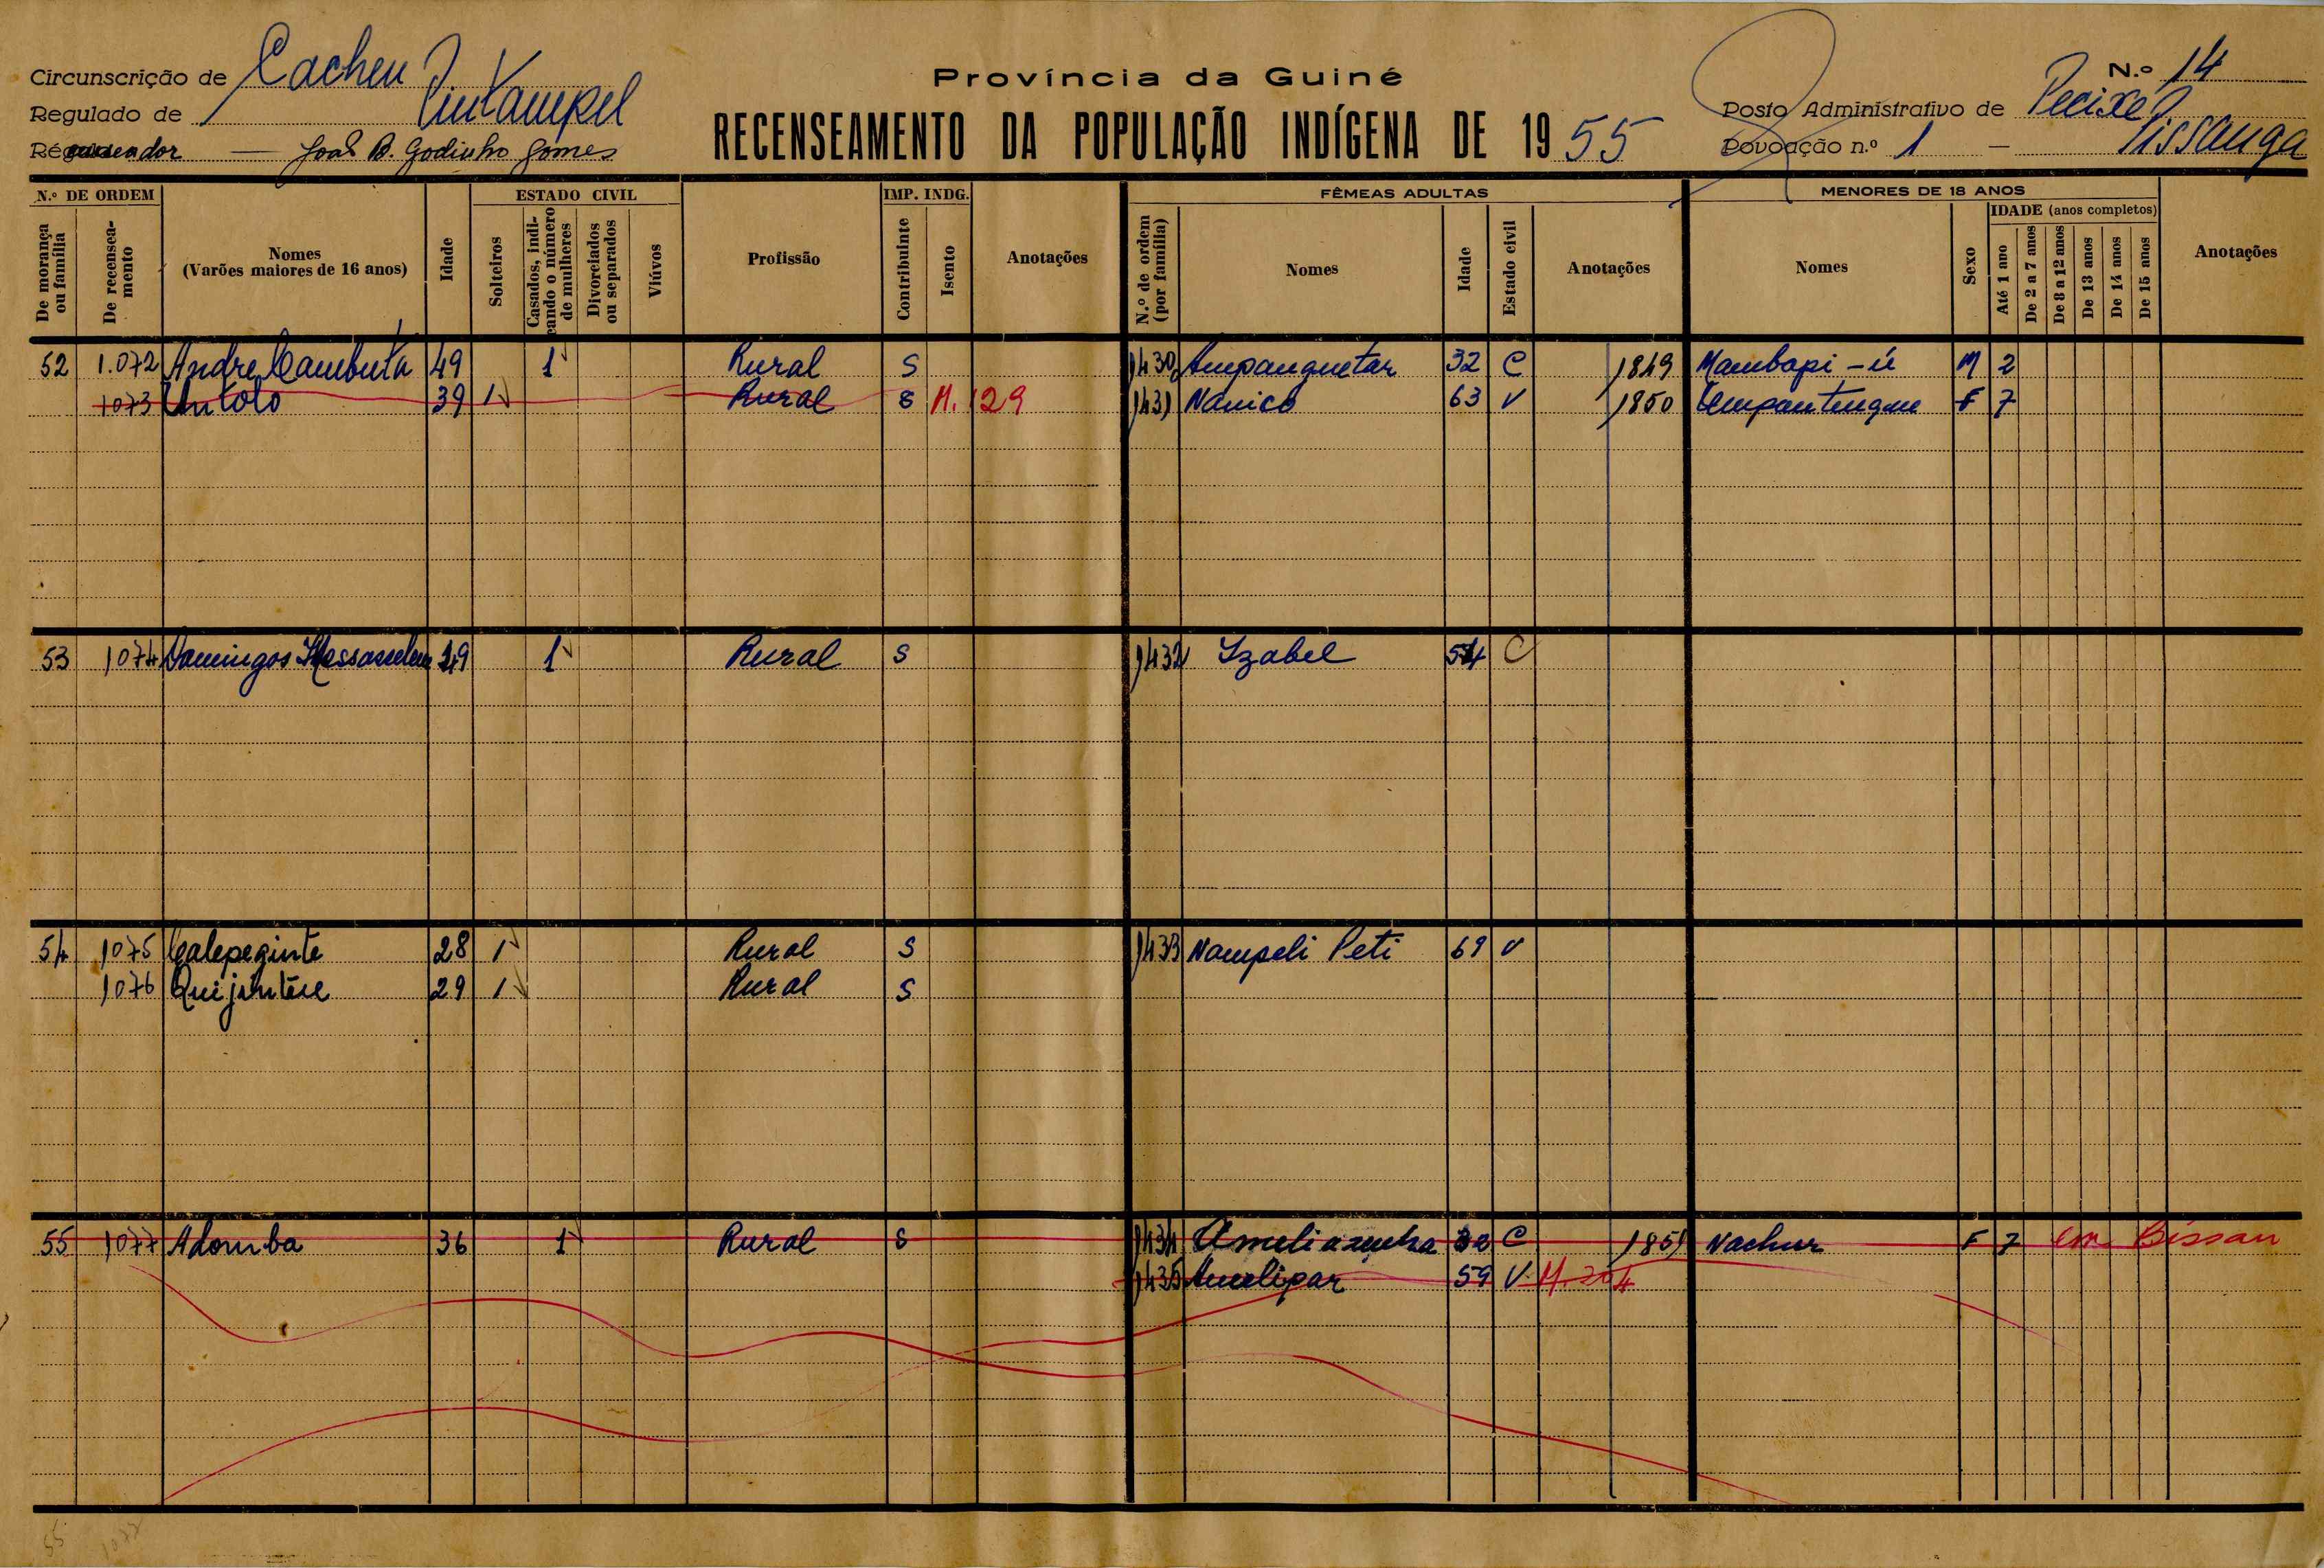 Província da Guiné
RECENSEAMENTO DA POPULAÇÃO INDÍGENA DE 1955
Circunscrição de Cacheu
Regulado de
João B. Godinho Gomes
N.º 14
Posto Administrativo de Pecixe
Povoação n.º 1 — Tissanga
N.º DE ORDEM
De morança ou família
De recenseamento
Nomes
(Varões maiores de 16 anos)
Idade
ESTADO CIVIL
Solteiros
Casados, indicando o número de mulheres
Divorciados ou separados
Viúvos
Profissão
IMP. INDG.
Contribuinte
Isento
Anotações
FÊMEAS ADULTAS
N.º de ordem (por família)
Nomes
Idade
Estado civil
Anotações
MENORES DE 18 ANOS
Nomes
Sexo
IDADE (anos completos)
Até 1 ano
De 2 a 7 anos
De 8 a 12 anos
De 13 anos
De 14 anos
De 15 anos
Anotações
52 1.072 Andre Cambuta 49 1 Rural S 1430 Ampanguetar 32 C 1849 Mambapi-ú M 2
1073 Untolo 39 1 Rural S M. 129 1431 Nanico 63 V 1850 F 7
53 1074 Domingos 1 Rural S 1432 Izabel 54 C
54 1075 Calepeginte 28 1 Rural S 1433 Nampeli Peti 69 V
1076 29 1 Rural S
55 1077 Adomba 36 1 Rural S 1434 C 1851 Nachur F 7 em Bissau
1435 Amelipar 59 V M. 204
55 1077